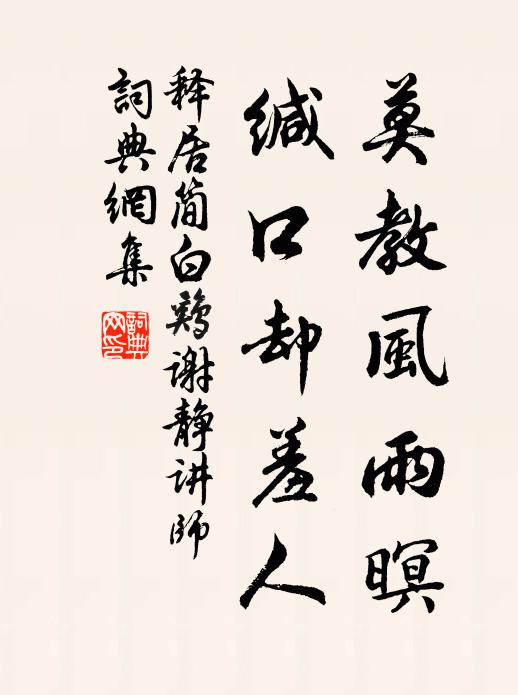 莫教風雨暝
缄口却羞人
释居简白鹅谢静讲师
詞典網集
詞典网印